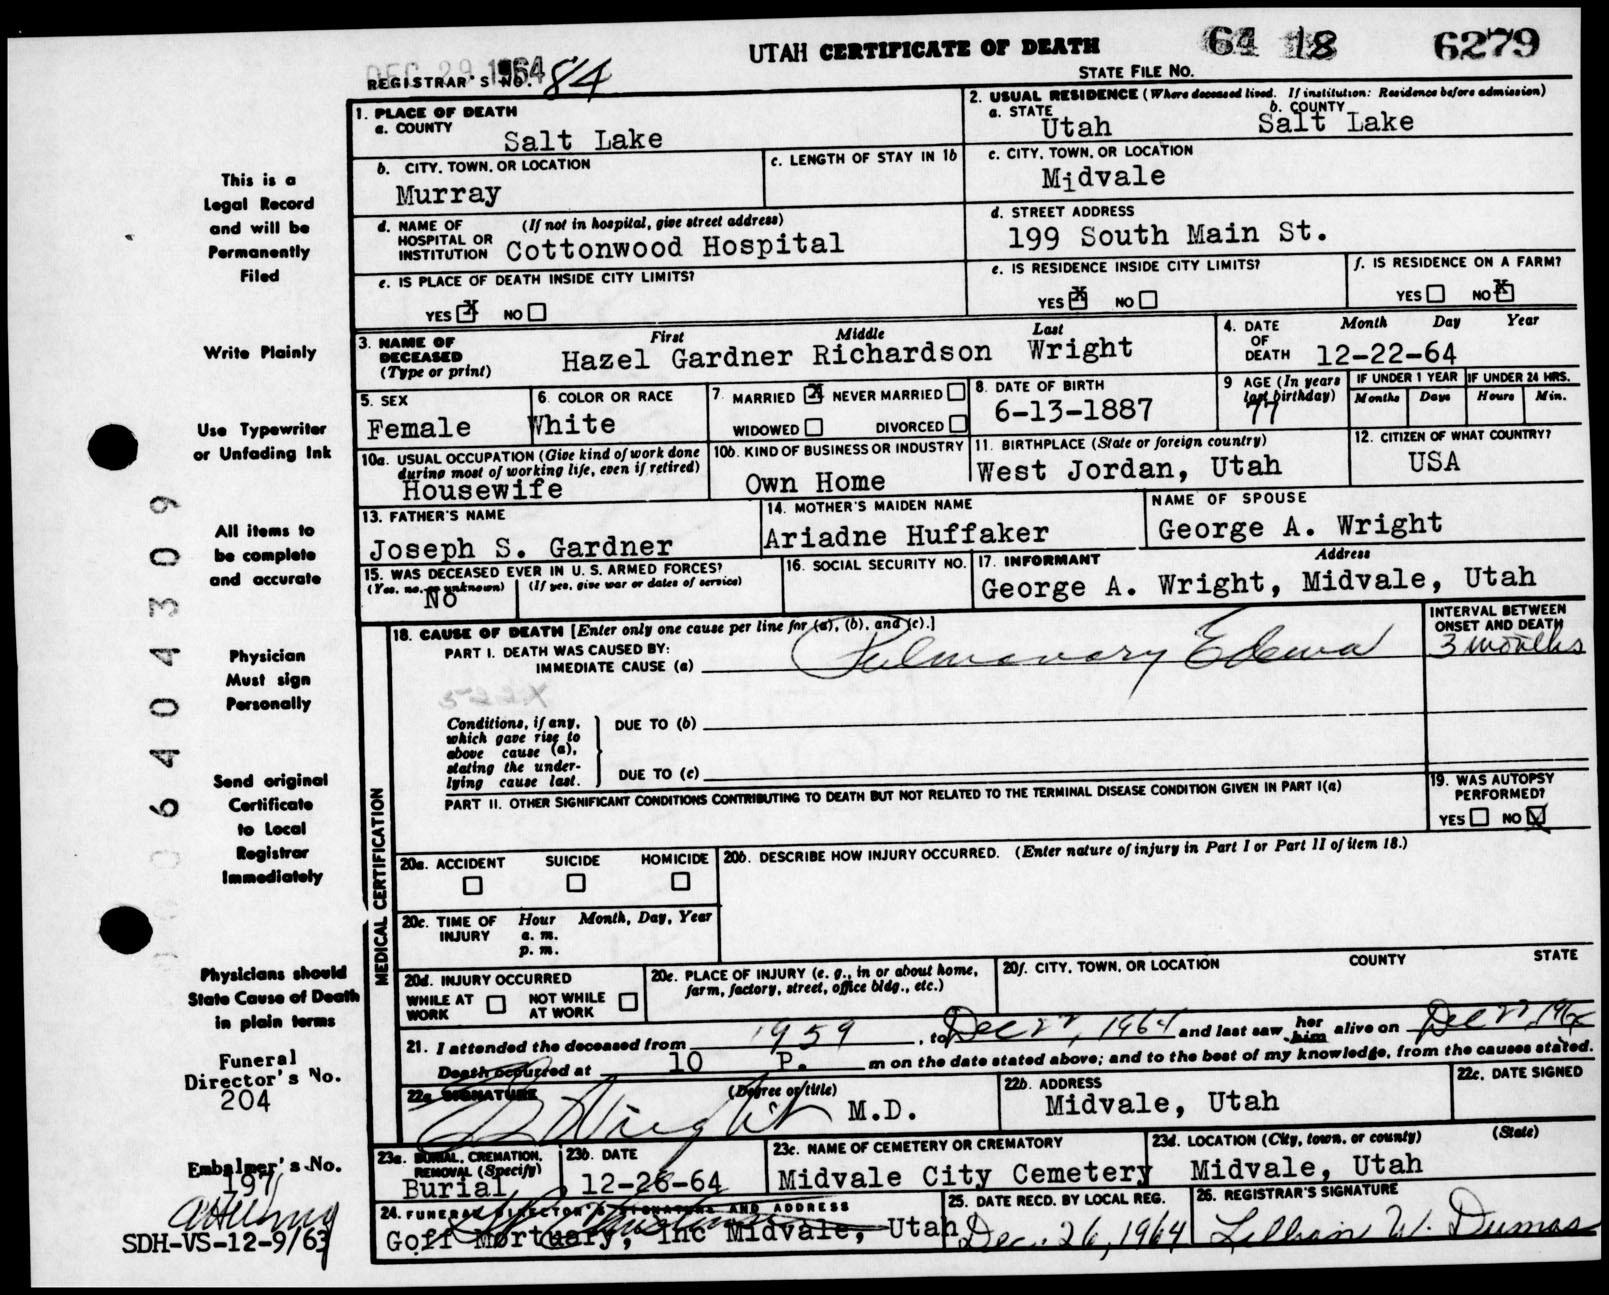 UTAH CERTIFICATE OF DEATH
64 18 6279
DEC 29 1964
REGISTRAR'S NO. 84
STATE FILE NO.
1. PLACE OF DEATH
a. COUNTY
Salt Lake
2. USUAL RESIDENCE (Where deceased lived. If institution: Residence before admission)
a. STATE
Utah
b. COUNTY
Salt Lake
b. CITY, TOWN, OR LOCATION
Murray
c. LENGTH OF STAY IN 1b
c. CITY, TOWN, OR LOCATION
Midvale
d. NAME OF HOSPITAL OR INSTITUTION (If not in hospital, give street address)
Cottonwood Hospital
d. STREET ADDRESS
199 South Main St.
e. IS PLACE OF DEATH INSIDE CITY LIMITS?
YES X NO
e. IS RESIDENCE INSIDE CITY LIMITS?
YES X NO
f. IS RESIDENCE ON A FARM?
YES NO X
3. NAME OF DECEASED (Type or print)
First Middle Last
Hazel Gardner Richardson Wright
4. DATE OF DEATH
Month Day Year
12-22-64
5. SEX
Female
6. COLOR OR RACE
White
7. MARRIED X NEVER MARRIED
WIDOWED DIVORCED
8. DATE OF BIRTH
6-13-1887
9 AGE (In years last birthday)
77
IF UNDER 1 YEAR
Months Days
IF UNDER 24 HRS.
Hours Min.
10a. USUAL OCCUPATION (Give kind of work done during most of working life, even if retired)
Housewife
10b. KIND OF BUSINESS OR INDUSTRY
Own Home
11. BIRTHPLACE (State or foreign country)
West Jordan, Utah
12. CITIZEN OF WHAT COUNTRY?
USA
13. FATHER'S NAME
Joseph S. Gardner
14. MOTHER'S MAIDEN NAME
Ariadne Huffaker
NAME OF SPOUSE
George A. Wright
15. WAS DECEASED EVER IN U. S. ARMED FORCES?
(Yes, no, or unknown) (If yes, give war or dates of service)
No
16. SOCIAL SECURITY NO.
17. INFORMANT Address
George A. Wright, Midvale, Utah
MEDICAL CERTIFICATION
18. CAUSE OF DEATH [Enter only one cause per line for (a), (b), and (c).]
PART I. DEATH WAS CAUSED BY:
IMMEDIATE CAUSE (a) Pulmonary Edema
INTERVAL BETWEEN ONSET AND DEATH
3 months
522X
Conditions, if any, which gave rise to above cause (a), stating the underlying cause last.
DUE TO (b)
DUE TO (c)
PART II. OTHER SIGNIFICANT CONDITIONS CONTRIBUTING TO DEATH BUT NOT RELATED TO THE TERMINAL DISEASE CONDITION GIVEN IN PART I(a)
19. WAS AUTOPSY PERFORMED?
YES NO
20a. ACCIDENT SUICIDE HOMICIDE
20b. DESCRIBE HOW INJURY OCCURRED. (Enter nature of injury in Part I or Part II of item 18.)
20c. TIME OF INJURY
Hour Month, Day, Year
a. m.
p. m.
20d. INJURY OCCURRED
WHILE AT WORK NOT WHILE AT WORK
20e. PLACE OF INJURY (e. g., in or about home, farm, factory, street, office bldg., etc.)
20f. CITY, TOWN, OR LOCATION COUNTY STATE
21. I attended the deceased from 1959, to Dec 22, 1964 and last saw her him alive on Dec 22, 1964
Death occurred at 10 P. m on the date stated above; and to the best of my knowledge, from the causes stated.
22a. SIGNATURE (Degree or title)
Wright M.D.
22b. ADDRESS
Midvale, Utah
22c. DATE SIGNED
23a. BURIAL, CREMATION, REMOVAL (Specify)
Burial
23b. DATE
12-26-64
23c. NAME OF CEMETERY OR CREMATORY
Midvale City Cemetery
23d. LOCATION (City, town, or county) (State)
Midvale, Utah
24. FUNERAL DIRECTOR'S SIGNATURE AND ADDRESS
Goff Mortuary, Inc Midvale, Utah
25. DATE RECD. BY LOCAL REG.
Dec. 26, 1964
26. REGISTRAR'S SIGNATURE
Lillian W. Dumas
This is a
Legal Record
and will be
Permanently
Filed
Write Plainly
Use Typewriter
or Unfading Ink
All items to
be complete
and accurate
Physician
Must sign
Personally
Send original
Certificate
to Local
Registrar
Immediately
Physicians should
State Cause of Death
in plain terms
Funeral
Director's No.
204
Embalmer's No.
197
SDH-VS-12-9/63
640 4309